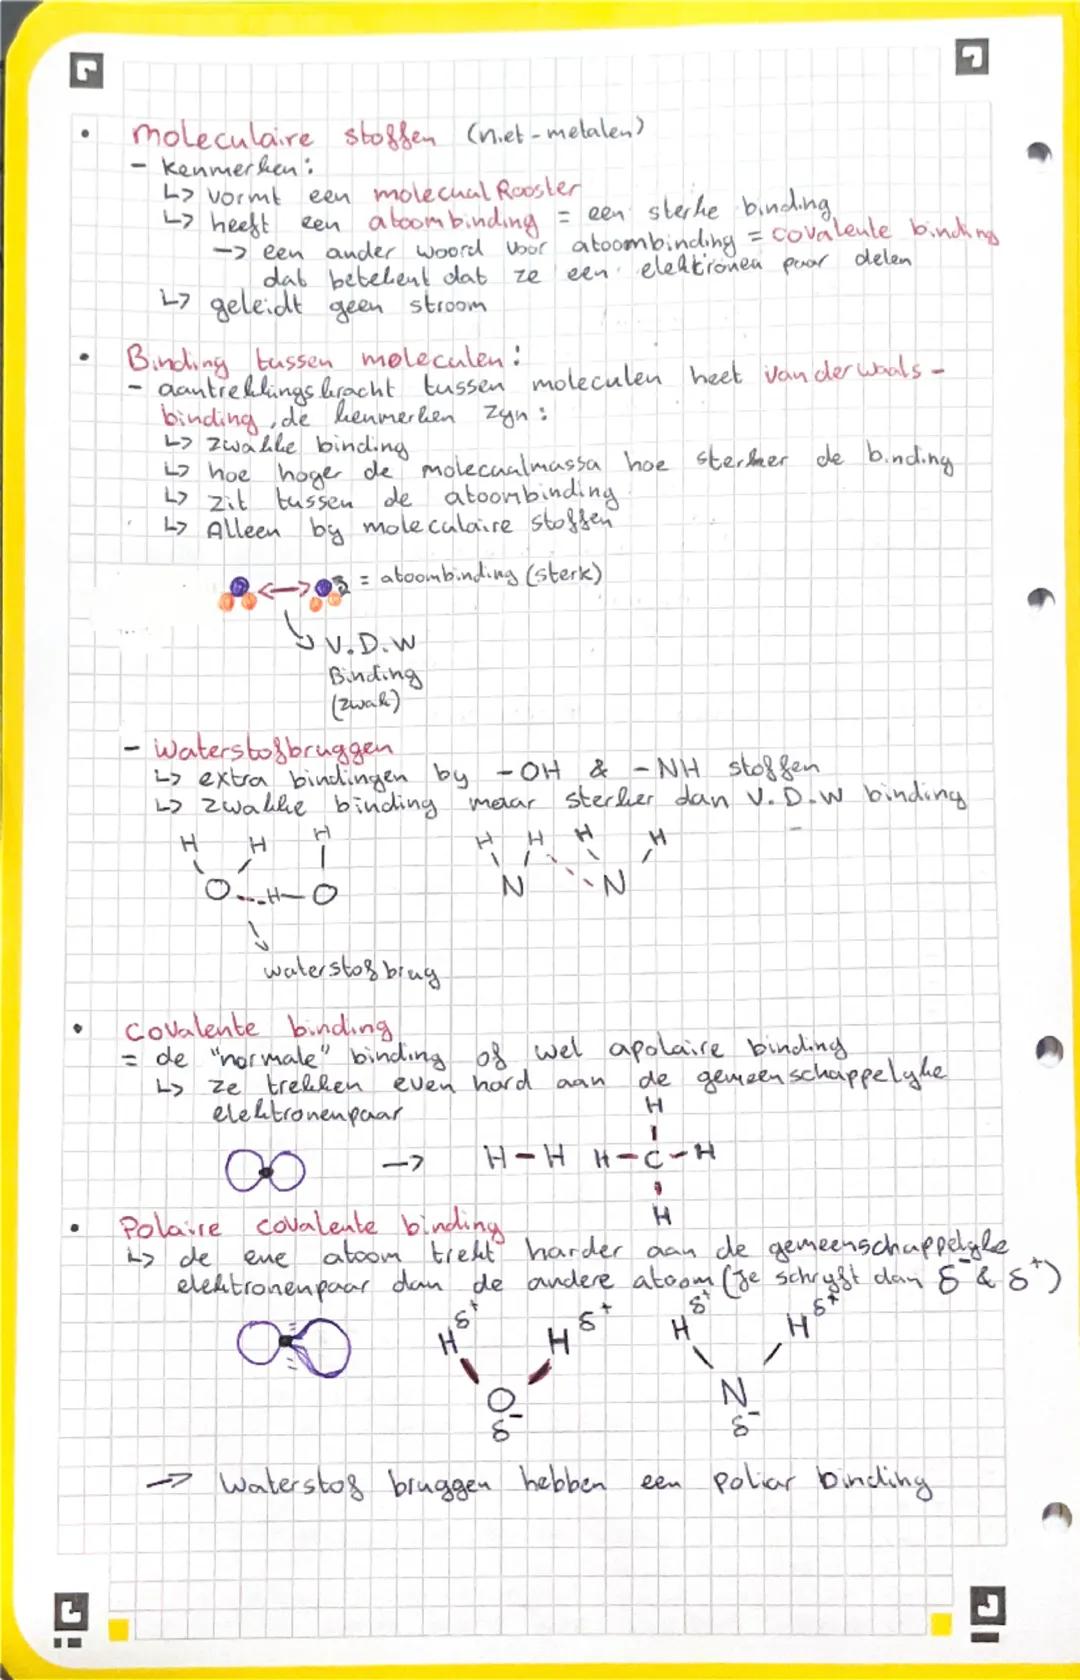 • moleculaire stoffen (niet-metalen)
- Kenmerken:
↳ vormt een molecuul Rooster
↳ heeft een atoombinding = een sterke binding
→ een ander woord voor atoombinding = covalente binding
dat betekent dat ze een elektronen paar delen
↳ geleidt geen stroom
• Binding tussen moleculen:
- aantrekkingskracht tussen moleculen heet van der waals-
binding, de kenmerken zyn:
↳ zwakke binding
↳ hoe hoger de molecuulmassa hoe sterker de binding
↳ zit tussen de atoombinding
↳ Alleen by moleculaire stoffen
= atoombinding (sterk)
V.D.W
Binding
(zwak)
- Waterstofbruggen
↳ extra bindingen by -OH & -NH stoffen
↳ zwakke binding maar sterker dan V.D.W binding
H H H H H H H
O---H-O N N
waterstofbrug
• Covalente binding
= de "normale" binding of wel apolaire binding
↳ ze trekken even hard aan de gemeenschappelyke
elektronenpaar
H
→ H-H H-C-H
H
• Polaire covalente binding
↳ de ene atoom trekt harder aan de gemeenschappelyke
elektronenpaar dan de andere atoom (je schryft dan δ⁻ & δ⁺)
H δ⁺ H δ⁺ H δ⁺ H δ⁺
O N
δ⁻ δ⁻
→ Waterstof bruggen hebben een poliar binding